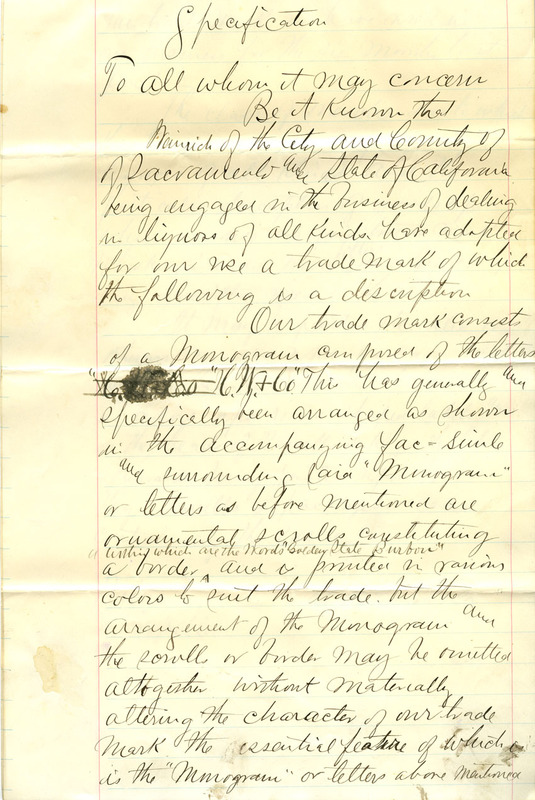 Specification
To all whom it may concern
Be it Known that
Weinrich of the City and County of
of Sacramento and State of California
being engaged in the business of dealing
in liquors of all kinds have adopted
for our use a trade mark of which
the following is a discription
Our trade mark consists
of a Monogram composed of the letters
"H.W.& Co" This has generally and
specifically been arranged as shown
in the accompanying fac=simile
and surrounding said "Monogram"
or letters as before mentioned are
ornamental scrolls constituting
within which are the words "Golden State Burbon"
a border, and is printed in various
colors to suit the trade. but the
arrangement of the Monogram and
the scrolls or border may be omitted
altogether without materially
altering the character of our trade
mark the essential feature of which is
is the "Monogram" or letters above mentioned